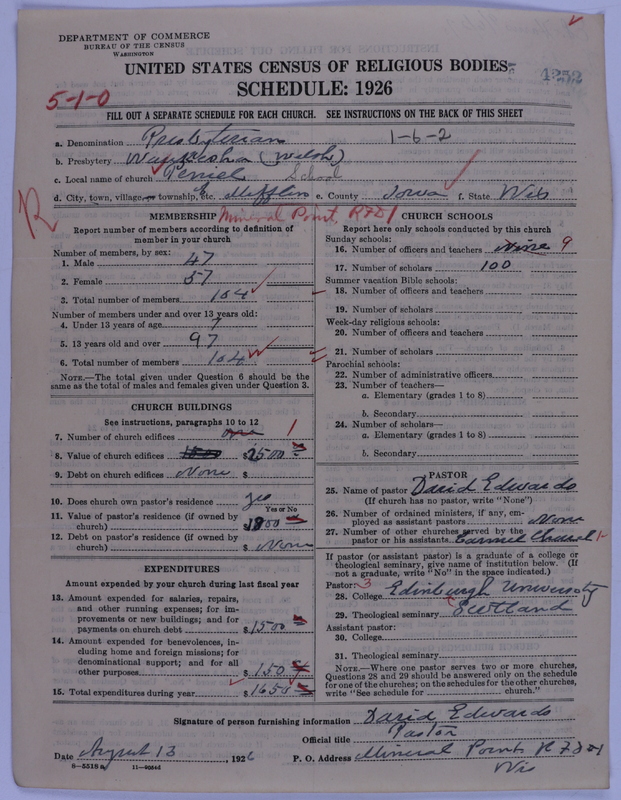 DEPARTMENT OF COMMERCE
BUREAU OF THE CENSUS
WASHINGTON
UNITED STATES CENSUS OF RELIGIOUS BODIES
4252
SCHEDULE: 1926
5-1-0
FILL OUT A SEPARATE SCHEDULE FOR EACH CHURCH. SEE INSTRUCTIONS ON THE BACK OF THIS SHEET
a. Denomination Presbyterian 1-6-2
b. Presbytery Waukesha (Welsh)
c. Local name of church Peniel School
d. City, town, village, or township, etc. E Mifflin e. County Iowa f. State Wis
Mineral Point RFD 1
R
MEMBERSHIP
Report number of members according to definition of member in your church
Number of members, by sex:
1. Male 47
2. Female 57
3. Total number of members 104
Number of members under and over 13 years old:
4. Under 13 years of age 7
5. 13 years old and over 97
6. Total number of members 104
NOTE.—The total given under Question 6 should be
the same as the total of males and females given under Question 3.
CHURCH BUILDINGS
See instructions, paragraphs 10 to 12
7. Number of church edifices one 1
8. Value of church edifices $2500
9. Debt on church edifices None $
10. Does church own pastor's residence yes
Yes or No
11. Value of pastor's residence (if owned by
church) $1800
12. Debt on pastor's residence (if owned by
church) $ None
EXPENDITURES
Amount expended by your church during last fiscal year
13. Amount expended for salaries, repairs,
and other running expenses; for im-
provements or new buildings; and for
payments on church debt $1500
14. Amount expended for benevolences, in-
cluding home and foreign missions; for
denominational support; and for all
other purposes $150
15. Total expenditures during year $1650
CHURCH SCHOOLS
Report here only schools conducted by this church
Sunday schools:
16. Number of officers and teachers Nine 9
17. Number of scholars 100
Summer vacation Bible schools:
18. Number of officers and teachers
19. Number of scholars
Week-day religious schools:
20. Number of officers and teachers
21. Number of scholars
Parochial schools:
22. Number of administrative officers
23. Number of teachers—
a. Elementary (grades 1 to 8)
b. Secondary
24. Number of scholars—
a. Elementary (grades 1 to 8)
b. Secondary
PASTOR
25. Name of pastor David Edwards
(If church has no pastor, write "None")
26. Number of ordained ministers, if any, em-
ployed as assistant pastors None
27. Number of other churches served by the
pastor or his assistants Carmel Church 1
If pastor (or assistant pastor) is a graduate of a college or
theological seminary, give name of institution below. (If
not a graduate, write "No" in the space indicated.)
Pastor: 3
28. College Edinburgh University
29. Theological seminary Scotland
Assistant pastor:
30. College
31. Theological seminary
NOTE.—Where one pastor serves two or more churches,
Questions 28 and 29 should be answered only on the schedule
for one of the churches; on the schedules for the other churches,
write "See schedule for church."
Signature of person furnishing information David Edwards
Official title Pastor
Date August 13, 1926 P. O. Address Mineral Point R F D 1
Wis
8-5518 a